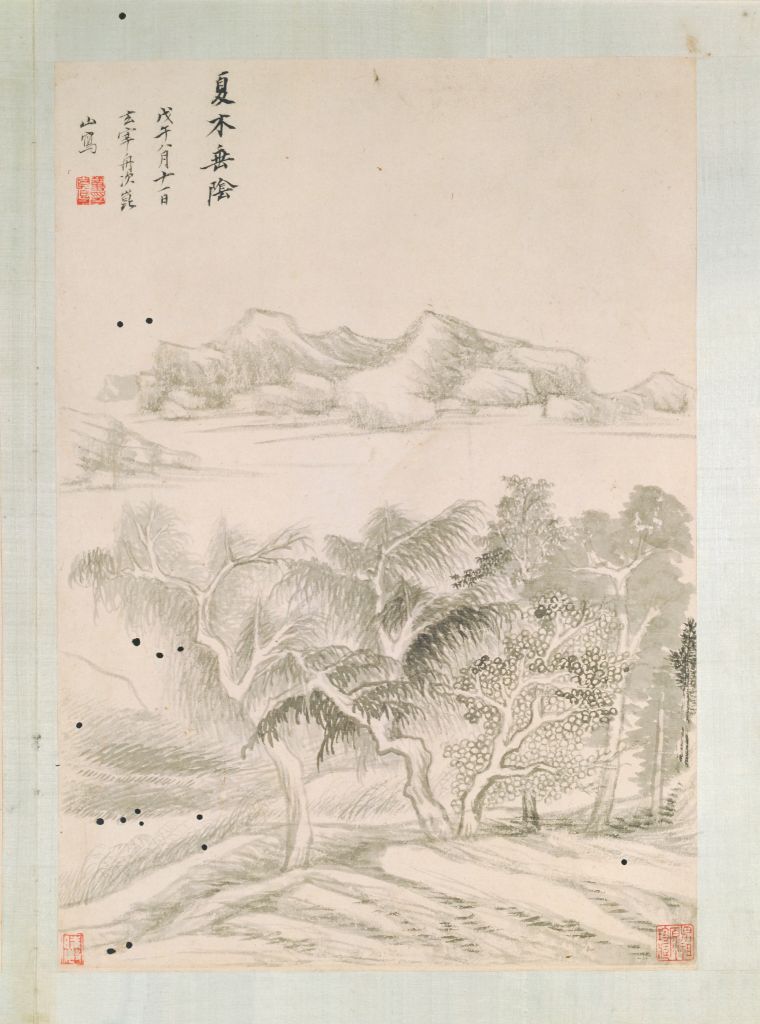 夏木垂陰
戊午八月十一日
玄宰舟次崑
山寫